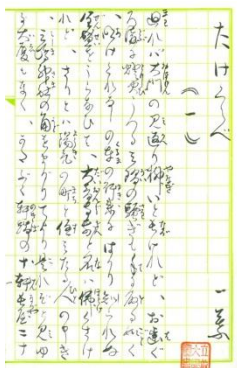 たけくらべ 一葉
(一)
廻れば大門の見返り柳いと長けれど、お歯ぐ
ろ溝に燈火うつる三階の騒ぎも手に取る如く
、明けくれなしの車の行来にはかり知られぬ
全盛をうらなひて、大音寺前と名は佛くさけ
れど、さりとは陽気の町と住みたる人の申き
、三嶋神社の角をまがりてより是れぞと見ゆ
る大厦もなく、かたぶく軒端の十軒長屋二十